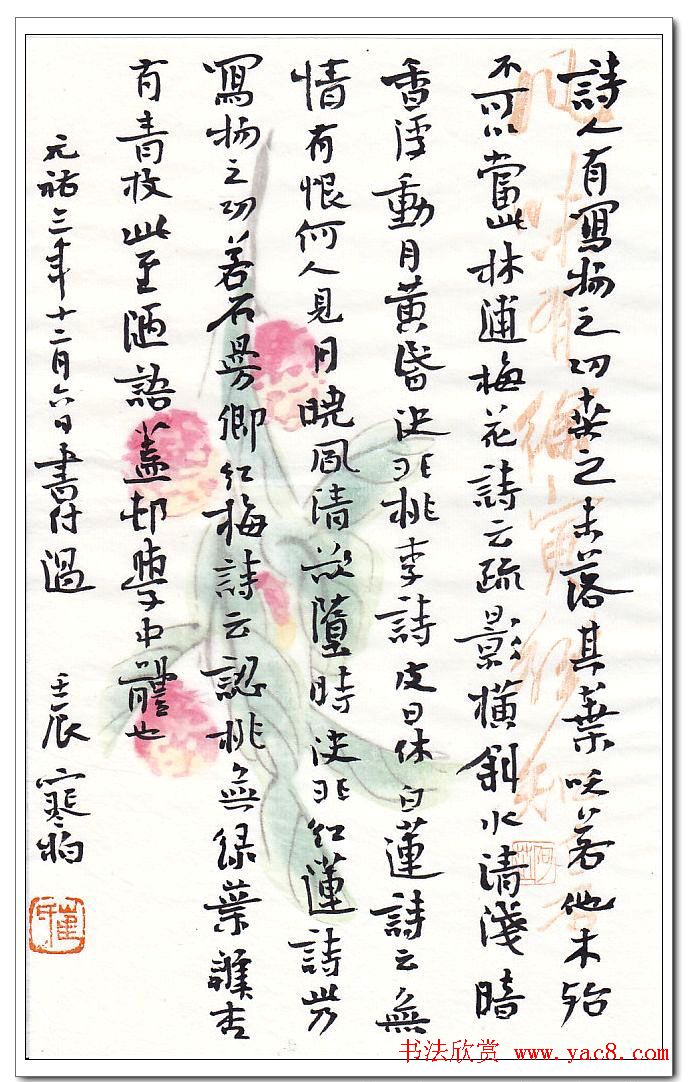 詩人有寫物之功桑之未落其葉沃若他木殆
不可以當此林逋梅花詩云疏影橫斜水清淺暗
香浮動月黃昏決非桃李詩皮日休白蓮詩云無
情有恨何人見月曉風清欲墮時決非紅蓮詩此乃
寫物之功若石曼卿紅梅詩云認桃無綠葉辨杏
有青枝此至陋語蓋村學中體也
元祐三年十二月六日書付過
壬辰寒
书法欣赏 www.yac8.com